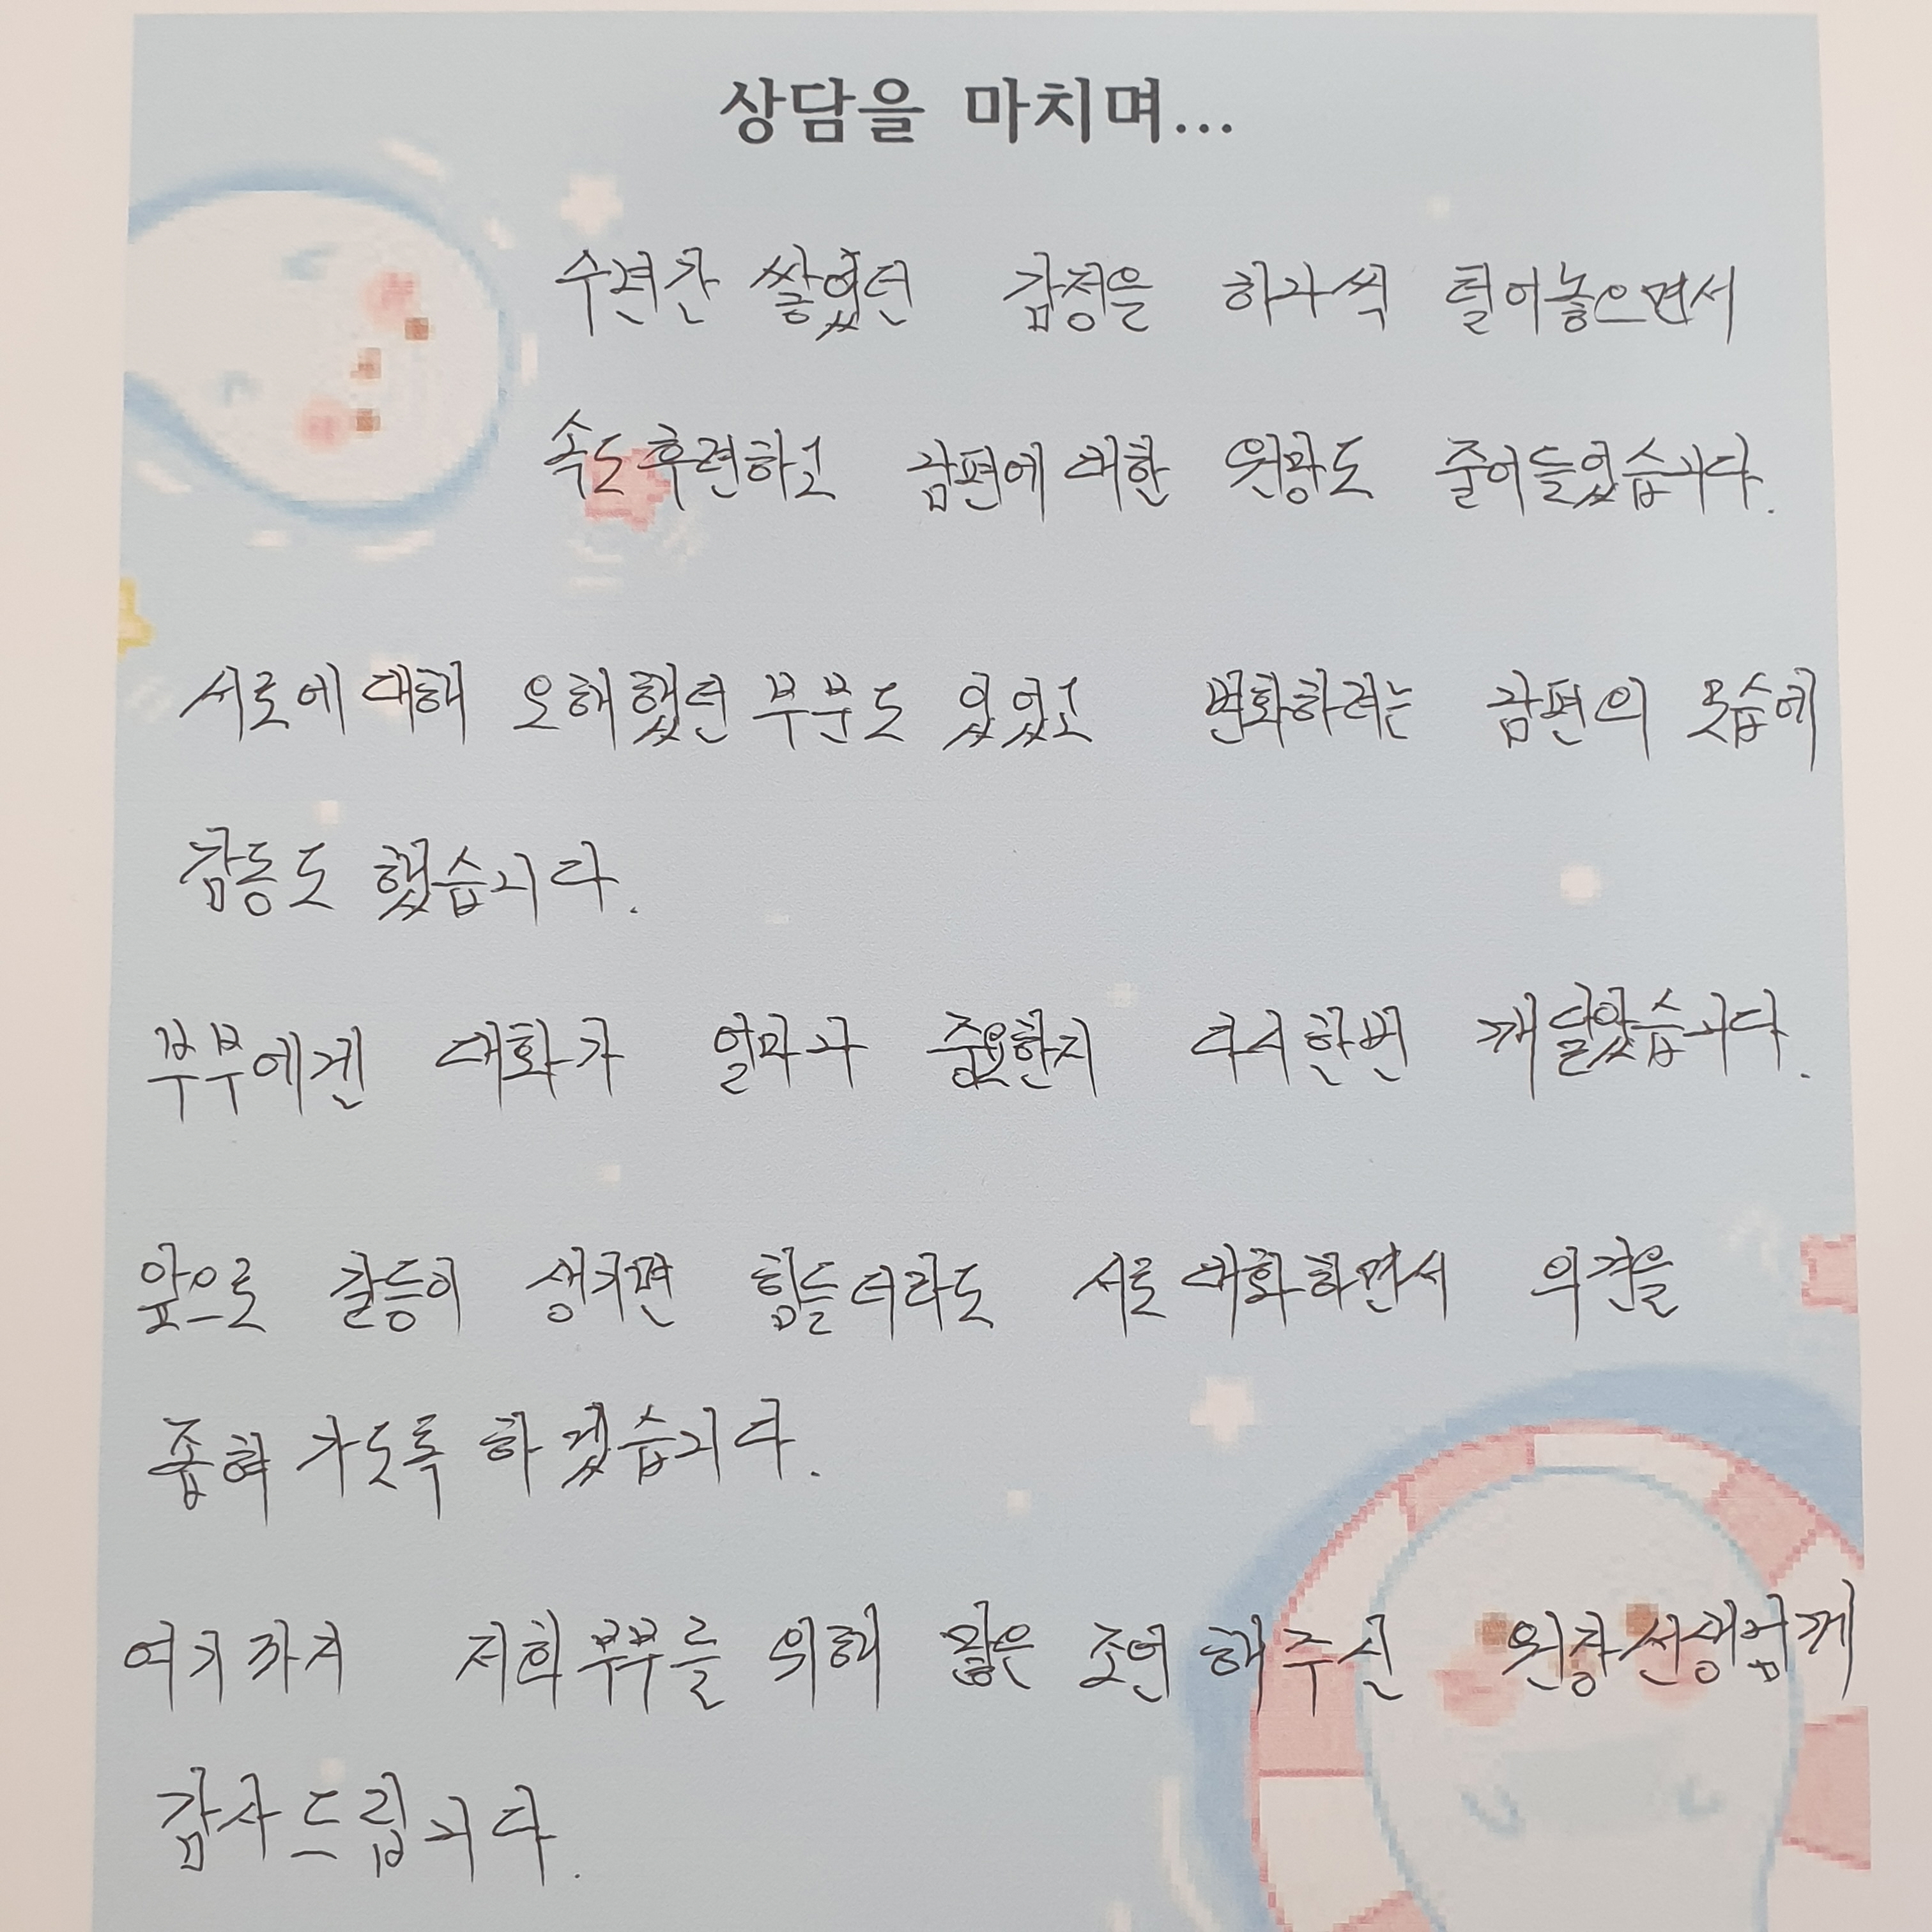 상담을 마치며...
수년간 쌓였던 감정을 하나씩 털어놓으면서
속도 후련하고 남편에 대한 원망도 줄어들었습니다.
서로에 대해 오해했던 부분도 있었고 변화하려는 남편의 모습에
감동도 했습니다.
부부에겐 대화가 얼마나 중요한지 다시 한번 깨달았습니다.
앞으로 갈등이 생기면 힘들더라도 서로 대화하면서 의견을
좁혀 가도록 하겠습니다.
여기까지 저희 부부를 위해 많은 조언 해주신 원장선생님께
감사드립니다.